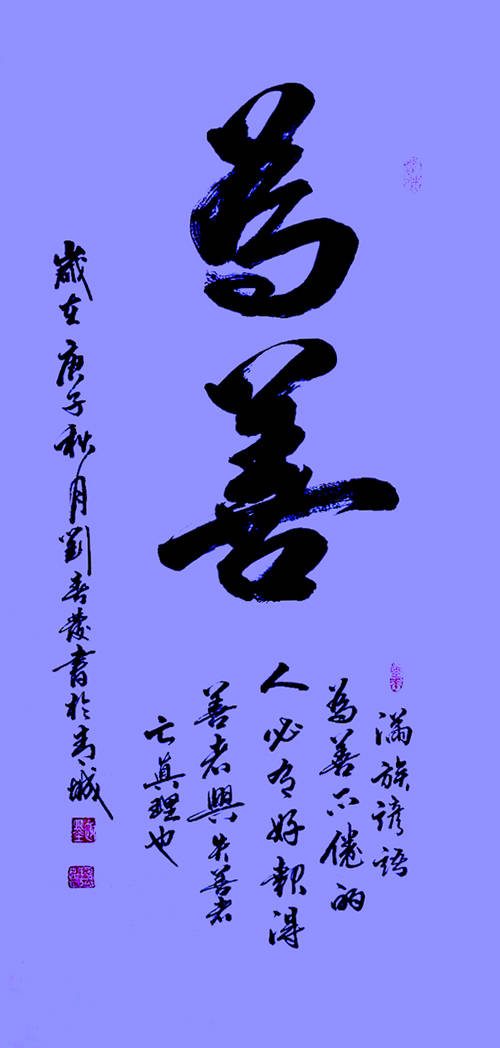 為善
滿族諺語
為善不倦的
人必有好報得
善者興失善者
亡真理也
歲在庚子秋月劉春發書於青城